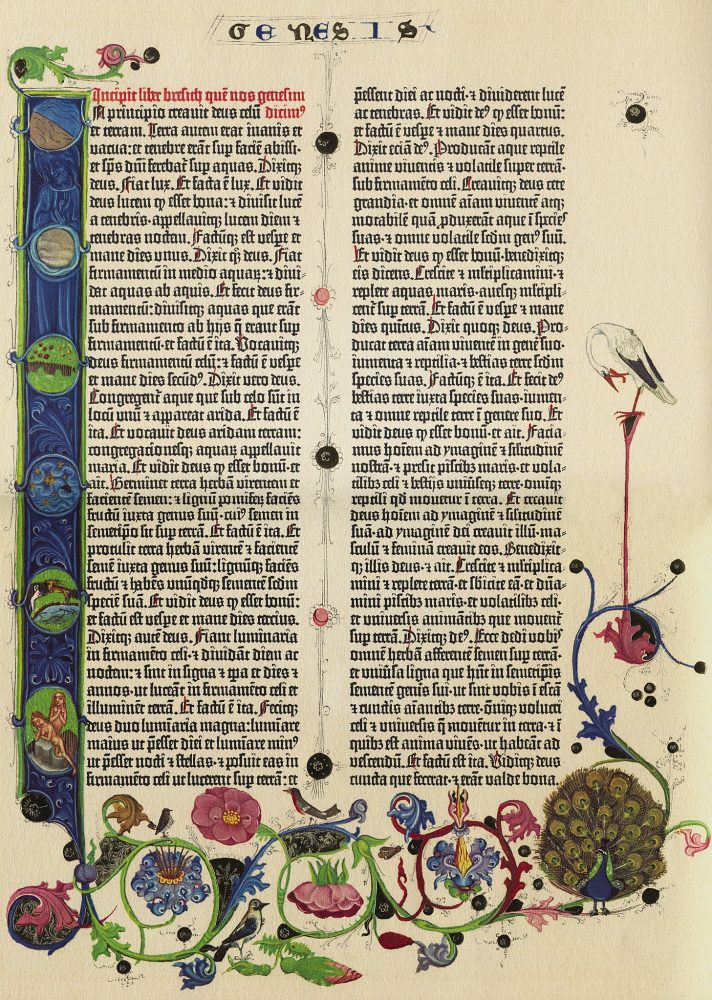 GENESIS
Incipit liber bresith quē nos genesim
N principio creauit deus celū dicimꝰ
et terram. Terra autem erat inanis et
vacua: et tenebre erāt sup faciē abissi·
et spūs dn̄i ferebat̄ sup aquas. Dixitꝗ
deus. Fiat lux. Et facta ē lux. Et vidit
deus lucem ꝙ esset bona: ⁊ diuisit lucē
a tenebris·appellauitꝗ lucem diem ⁊
tenebras noctem. Factūꝗ est vespe et
mane dies vnus. Dixit qꝫ deus. Fiat
firmamentū in medio aquaꝝ: ⁊ diui-
dat aquas ab aquis. Et fecit deus fir-
mamentū: diuisitꝗ aquas que erāt
sub firmamento ab hijs ꝗ erant sup
firmamentū·et factū ē ita. Vocauitꝗ
deus firmamentū celū: ⁊ factū ē vespe
et mane dies secūdꝰ. Dixit vero deus.
Congregent̄ aque que sub celo sūt in
locū vnū ⁊ appareat arida. Et factū ē
ita. Et vocauit deus aridam terram:
congregacionesꝗ aquaꝝ appellauit
maria. Et vidit deus ꝙ esset bonū·et
ait. Germinet terra herbā virentem et
facientē semen: ⁊ lignū pomifeꝝ faciēs
fructū iuxta genus suū·cuiꝰ semen in
semetipo sit sup terrā. Et factū ē ita. Et
protulit terra herbā virentē ⁊ facientē
semē iuxta genus suū: lignūꝗ faciēs
fructū ⁊ habēs vnūqdꝗ sementē scdm
speciē suā. Et vidit deus ꝙ esset bonū:
et factū est vespe et mane dies tercius.
Dixitꝗ autē deus. Fiant luminaria
in firmamēto celi·⁊ diuidāt diem ac
noctem: ⁊ sint in signa ⁊ tpa et dies ⁊
annos·ut luceāt in firmamēto celi et
illuminēt terrā. Et factū ē ita. Fecitꝗ
deus duo luminaria magna: lumiare
maius ut pesset diei et lumiare minꝰ
ut pesset nocti·⁊ stellas·⁊ posuit eas in
firmamēto celi ut lucerent sup terrā: et
pessent diei ac nocti·⁊ diuiderent lucē
ac tenebras. Et vidit deꝰ ꝙ esset bonū:
et factū ē vespe ⁊ mane dies quartus.
Dixit eciā deꝰ. Producāt aque reptile
anime viuentis ⁊ volatile super terrā·
sub firmamēto celi. Creauitꝗ deus cete
grandia·et omnē aīam viuentē atꝗ
motabilē quā pduxerāt aque ī species
suas·⁊ omne volatile scdm genꝰ suū.
Et vidit deus ꝙ esset bonū·benedixitꝗ
eis dicens. Crescite ⁊ mltiplicamini·⁊
replete aquas maris·auesꝗ mltipli-
cent̄ sup terrā. Et factū ē vespe ⁊ mane
dies quītus. Dixit quoꝗ deus. Pro-
ducat terra aīam viuentē in genē suo·
iumenta ⁊ reptilia·⁊ bestias terre scdm
species suas. Factūꝗ ē ita. Et fecit deꝰ
bestias terre iuxta species suas·iumen-
ta ⁊ omne reptile terre ī genere suo. Et
vidit deus ꝙ esset bonū·et ait. Facia-
mus hoīem ad ymaginē ⁊ silitudinē
nostrā·⁊ presit piscibꝰ maris·et vola-
tilibꝰ celi ⁊ bestijs vniūseꝗ terre·omīꝗ
reptili qd mouet̄ ī terra. Et creauit
deus hoīem ad ymaginē ⁊ silitudinē
suā·ad ymaginē dei creauit illū·ma-
sculū ⁊ feminā creauit eos. Benedixit-
ꝗ illis deus·⁊ ait. Crescite ⁊ mltiplica-
mini ⁊ replete terrā·et sbicite eā·et dn̄a-
mini piscibꝰ maris·et volatilibꝰ celi·
et vniuersis animātibꝰ que mouent̄
sup terrā. Dixitꝗ deꝰ. Ecce dedi vobis
omnē herbā afferentē semen sup terrā·
et vniūsa ligna que hn̄t in semetipis
sementē genis sui·ut sint vobis ī escā
⁊ cūctis aīantibꝰ terre·oīꝗ volucri
celi ⁊ vniuersis ꝗ mouēt̄ in terra·⁊ ī
quibꝰ est anima viuēs·ut habeāt ad
vescendū. Et factū est ita. Viditꝗ deus
cuncta que fecerat·⁊ erāt valde bona.